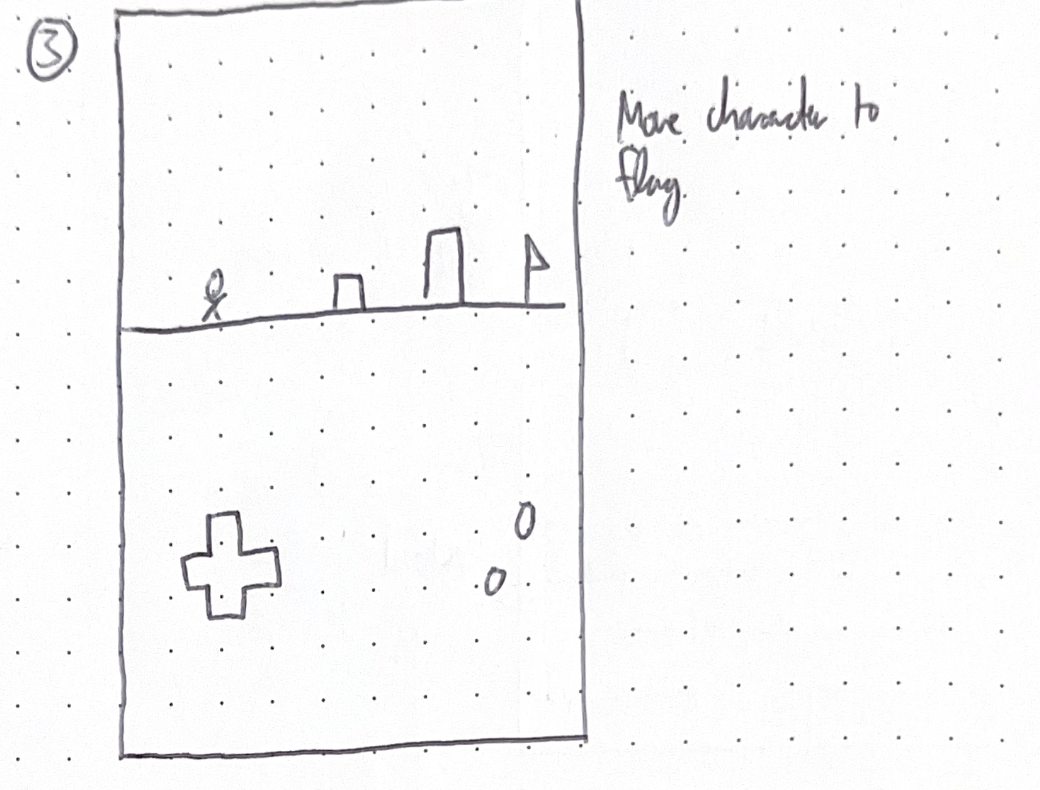 3
Move character to
flag.